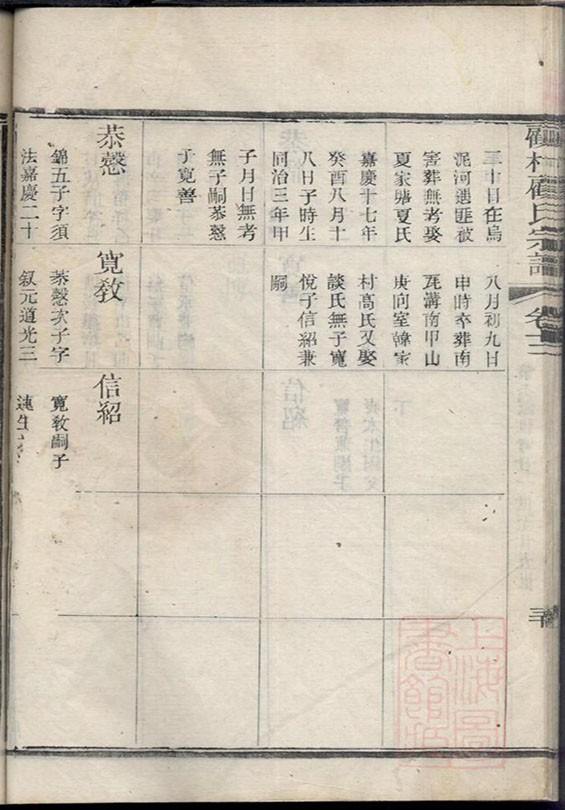 顧村顧氏宗譜
卷十二
三十
三十日在烏
泥河遇匪被
害葬無考娶
夏家塘夏氏
嘉慶十七年
癸酉八月十
八日子時生
同治三年甲
子月日無考
無子嗣恭愨
子寬善
八月初九日
申時卒葬南
莊溝南甲山
庚向室韓家
村高氏又娶
談氏無子寬
悅子信紹兼
嗣
恭愨
錦五子字須
法嘉慶二十
寬敎
恭愨次子字
叙元道光三
信紹
寬敎嗣子
上海圖書館藏